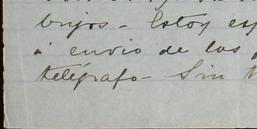 bujos - Estoy es
á envio de las
telégrafo - Sin